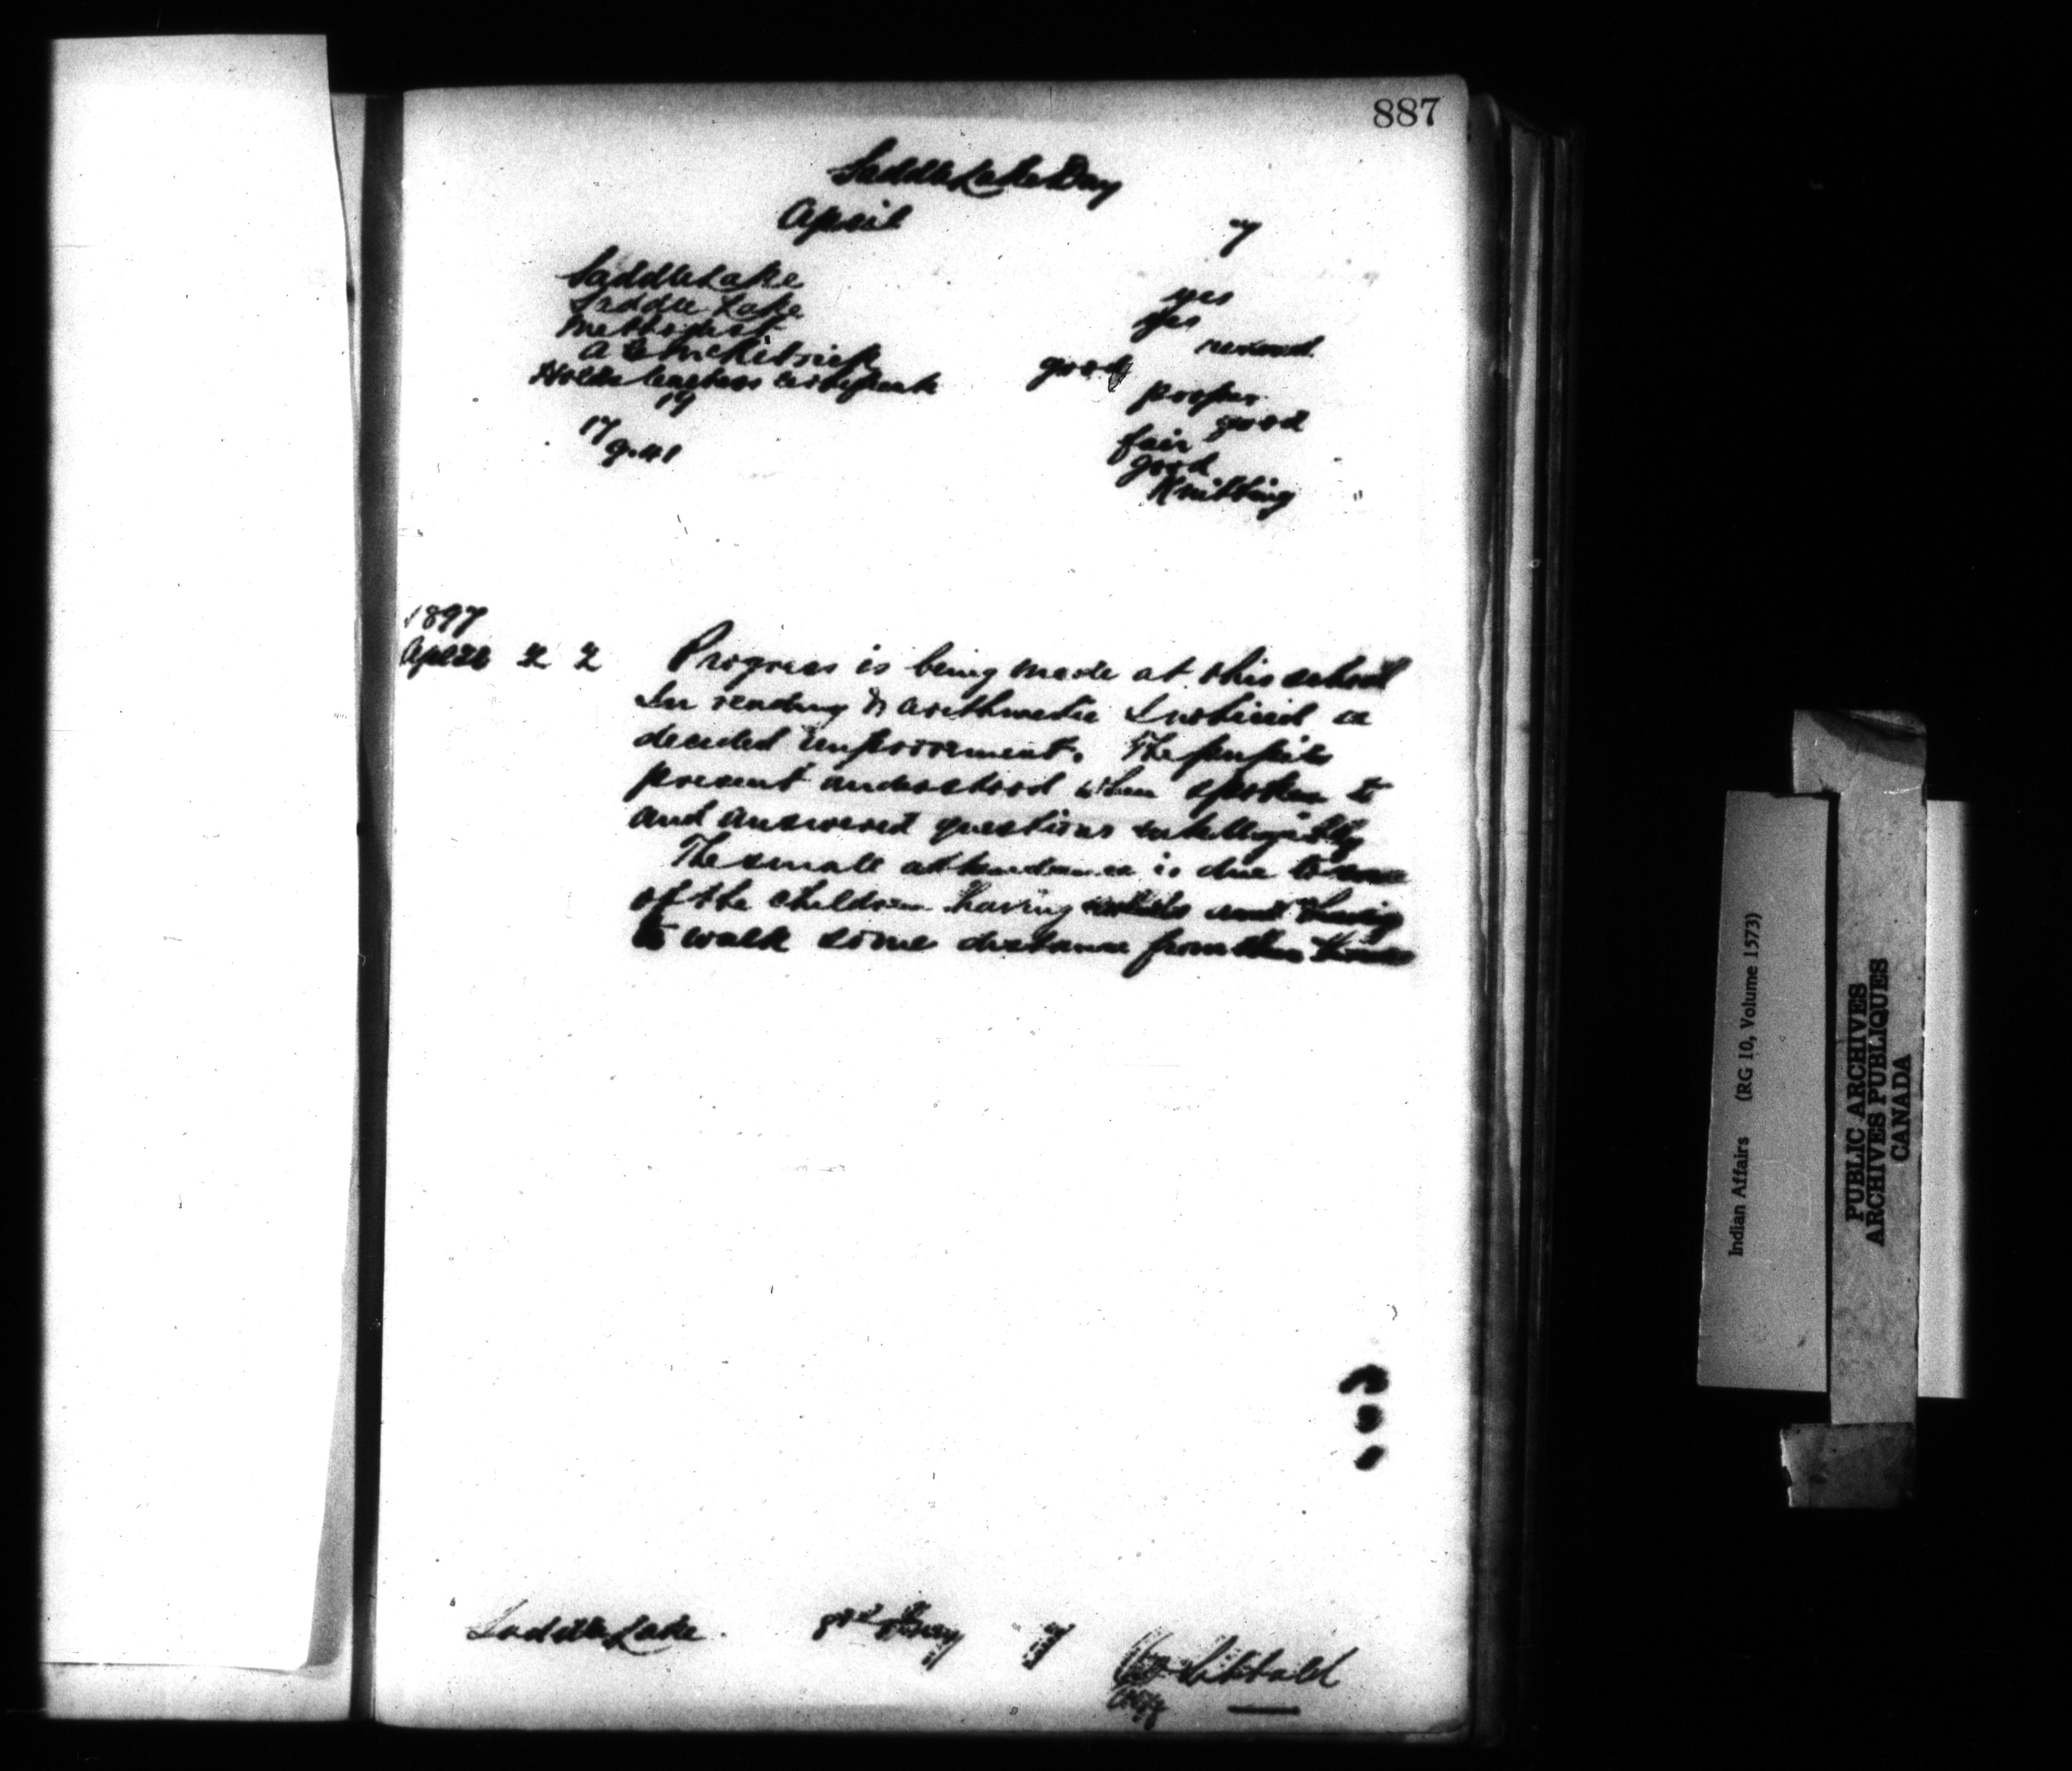 887
Saddle Lake Day
April 7
Saddle Lake yes
Saddle Lake yes
Methodist removed
A E McKitrick good
Holds teachers certificate proper
19 good
17 fair
9.41 good
Knitting
1897
April 22 2 Progress is being made at this school
In reading & arithmetic I noticed a
decided improvement. The pupils
present understood when spoken to
and answered questions intelligibly
The small attendance is due to some
of the children having colds and having
to walk some distance from their homes
Saddle Lake. 3rd May 7
Indian Affairs (RG 10, Volume 1573)
PUBLIC ARCHIVES
ARCHIVES PUBLIQUES
CANADA